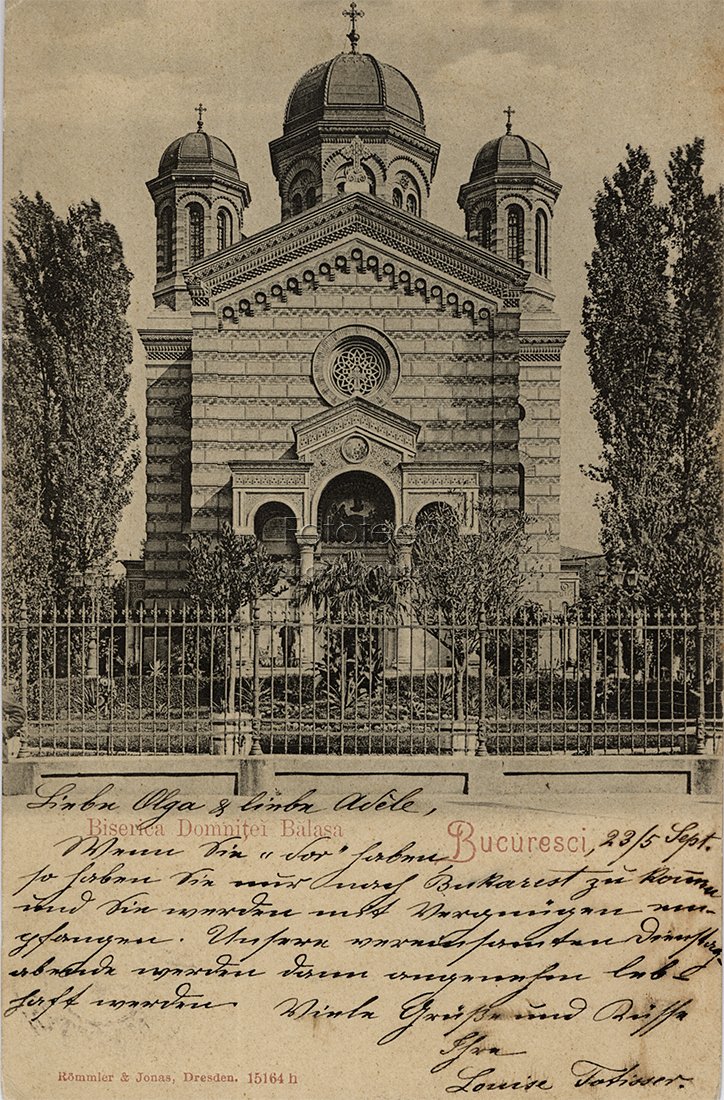 Fototeca
Liebe Olga & liebe Adèle,
Biserica Domniţei Balaşa
Bucuresci, 23/5 Sept.
Wenn Sie "dor" haben
so haben Sie nur nach Bukarest zu komm
und Sie werden mit Vergnügen em-
pfangen. Unsere vereinsamten Dienstag
abende werden dann angenehm leb-
haft werden. Viele Grüße und Küsse
Ihre
Louise
Römmler & Jonas, Dresden. 15164 h